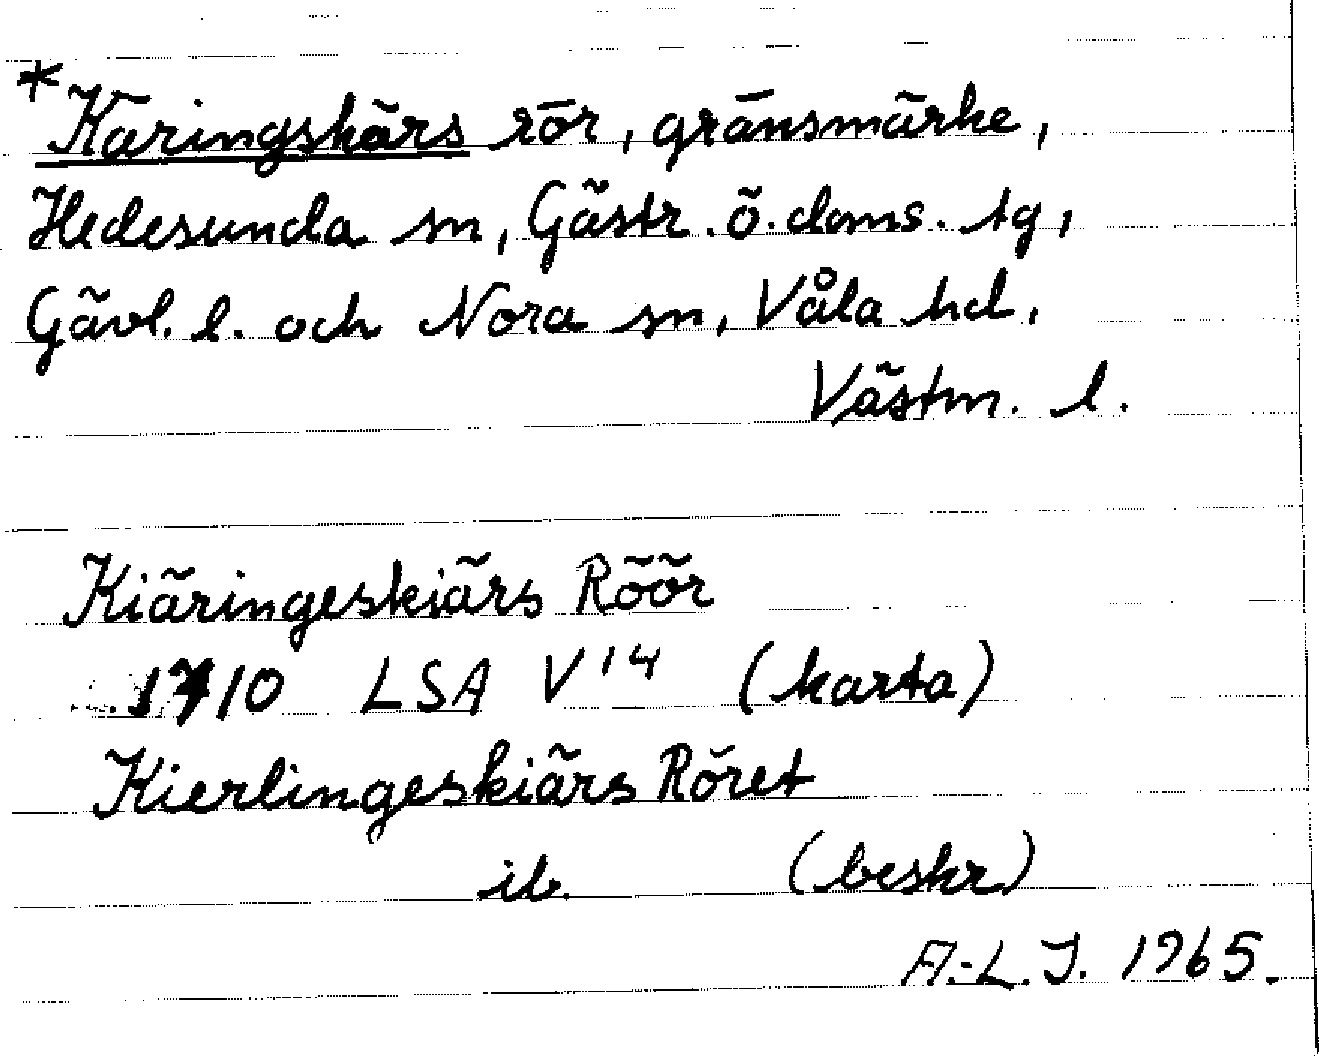 *Käringskärs rör, gränsmärke,
Hedesunda sn, Gästr. ö. doms. tg,
Gävl. l. och Nora sn, Våla hd,
Västm. l.
Kiäringeskiärs Röör
1710 LSA V14 (karta)
Kierlingeskiärs Röret
ib. (beskr)
A.-L.J. 1965.